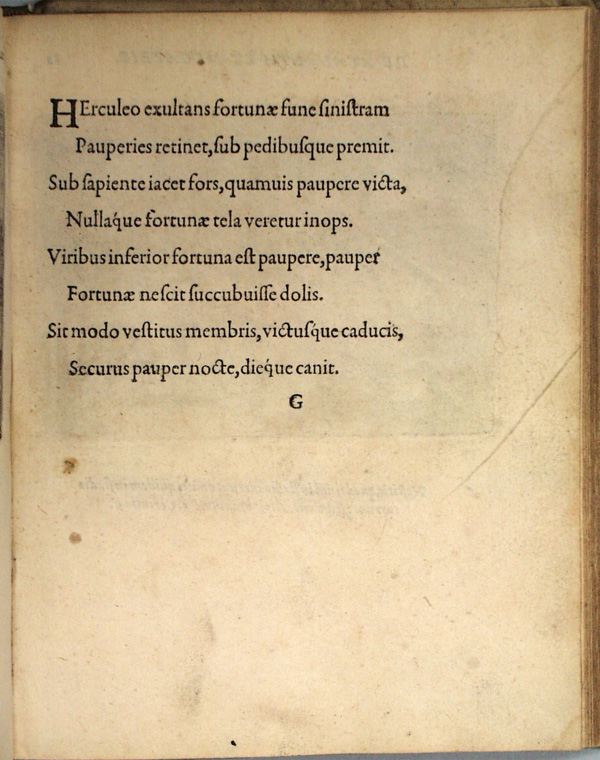 HErculeo exultans fortunæ fune ſiniſtram
Pauperies retinet, ſub pedibuſque premit.
Sub ſapiente iacet fors, quamuis paupere victa,
Nullaq́ue fortunæ tela veretur inops.
Viribus inferior fortuna eſt paupere, pauper
Fortunæ neſcit ſuccubuiſſe dolis.
Sit modo veſtitus membris, victuſque caducis,
Securus pauper nocte, dieq́ue canit.
G